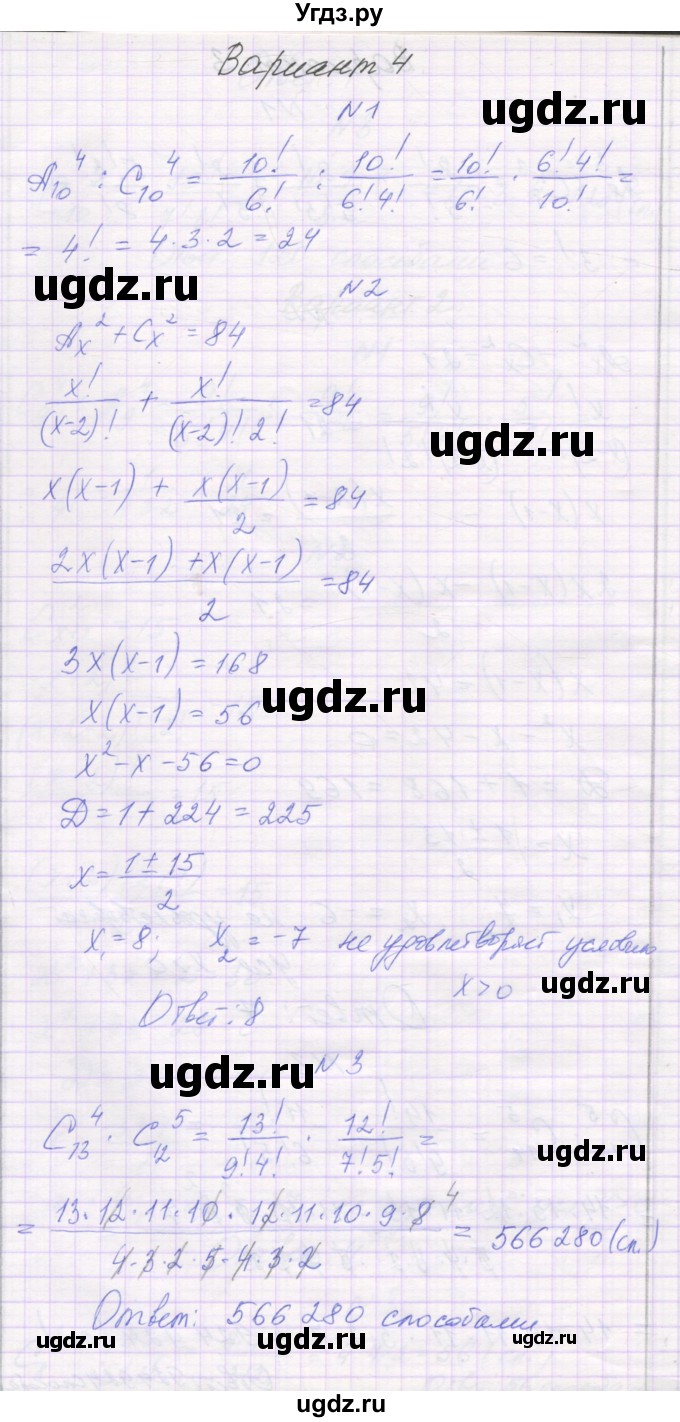 Угдз.ру
Вариант 4
ugdz.ru
N1
A₁₀⁴ : C₁₀⁴ = 10!/6! : 10!/(6!4!) = 10!/6! · 6!4!/10! =
= 4! = 4·3·2 = 24
ugdz.ru
N2
Aₓ² + Cₓ² = 84
x!/(x-2)! + x!/((x-2)!2!) = 84
ugdz.ru
x(x-1) + x(x-1)/2 = 84
(2x(x-1) + x(x-1))/2 = 84
ugdz.ru
3x(x-1) = 168
ugdz.ru
x(x-1) = 56
x² - x - 56 = 0
Д = 1 + 224 = 225
ugdz.ru
x = (1 ± 15)/2
x₁ = 8; x₂ = -7 не удовлетворяет условию
x > 0
ugdz.ru
Ответ: 8
ugdz.ru
N 3
C₁₃⁴ · C₁₂⁵ = 13!/(9!4!) · 12!/(7!5!) =
ugdz.ru
= (13·12·11·10·12·11·10·9·8 4)/(4·3·2·5·4·3·2) = 566 280 (сп.)
Ответ: 566 280 способами
ugdz.ru
ugdz.ru
ugdz.ru
ugdz.ru